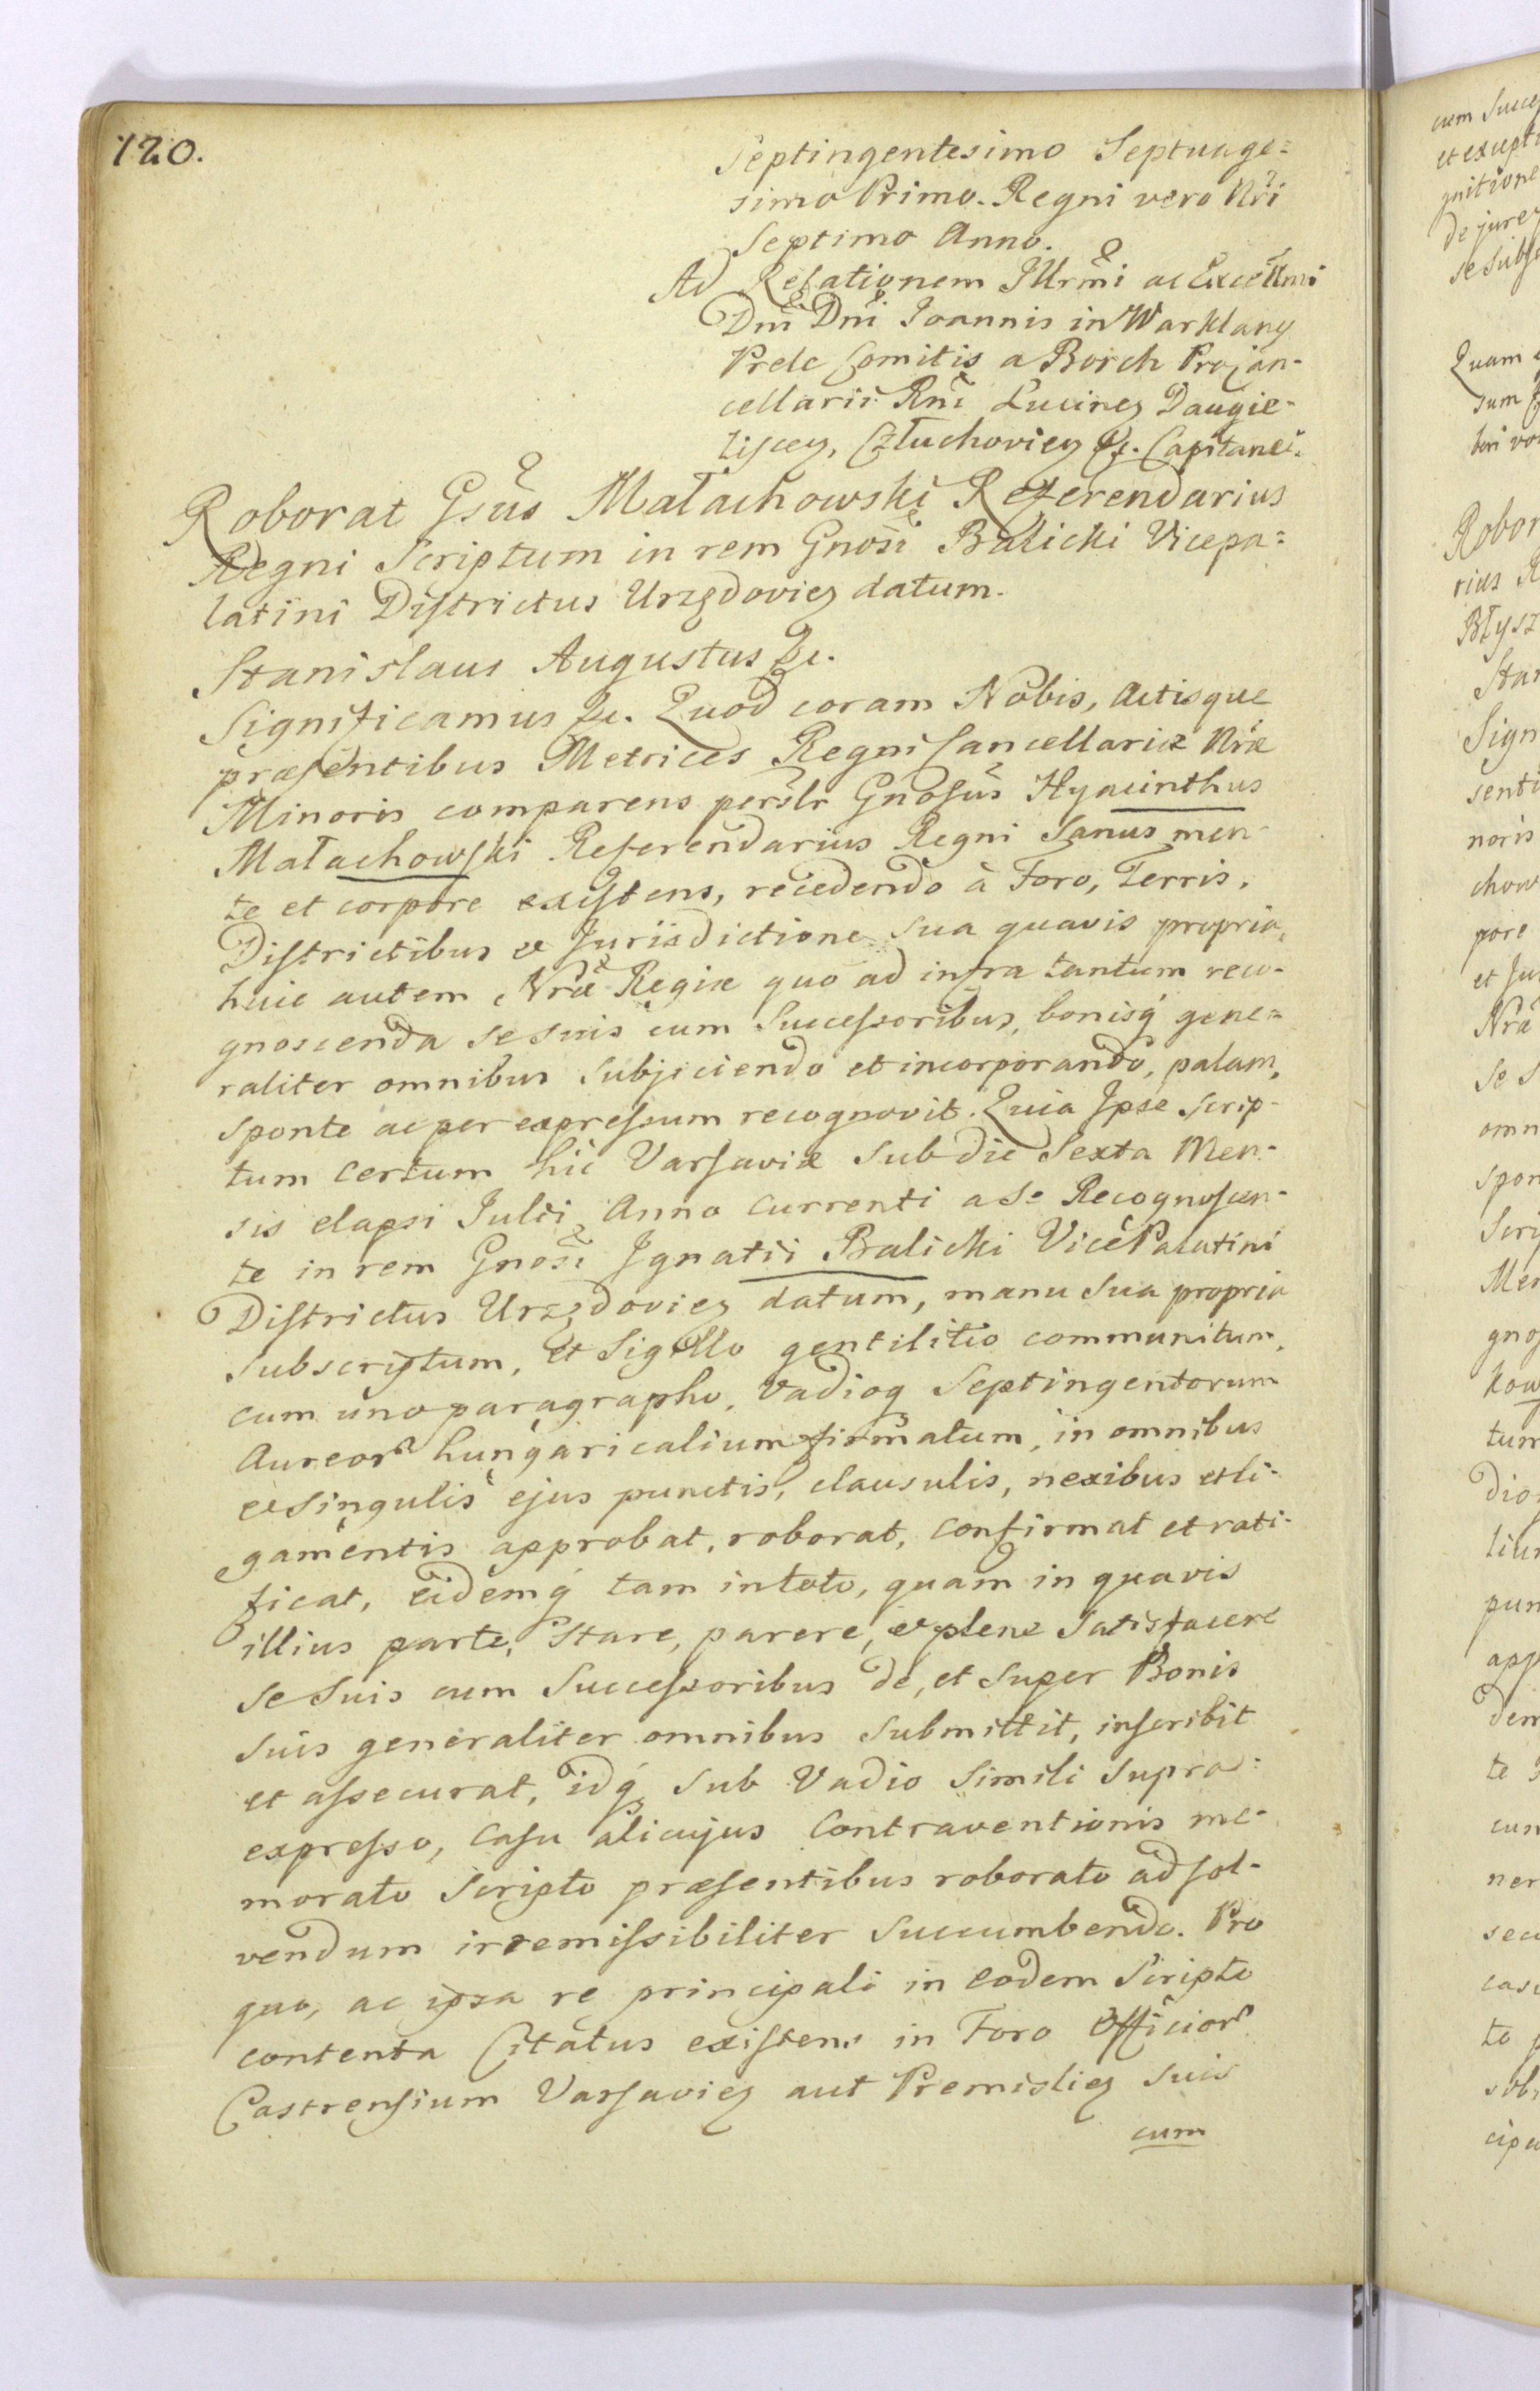 120.
Septingentesimo Septuage=
simo Primo. Regni vero Nri
Septimo Anno.
Ad Relationem Illrmi ac Excellmi
Dni Dni Joannis in Warklany
Prele Comitis a Borch Procan-
cellarii Rni Lucinen Daugie-
liscen, Człuchovien &c. Capitanei.
Roborat Gsus Małachowski Referendarius
Regni Scriptum in rem Gnosi Balicki Vicepa=
latini Districtus Urzędovien datum.
Stanislaus Augustus &c.
Significamus &c. Quod coram Nobis, Actisque
præsentibus Metrices Regni Cancellariæ Nræ
Minoris comparens persltr Gnosus Hyacinthus
Małachowski Referendarius Regni Sanus men-
te et corpore existens, recedendo à Foro, Terris,
Districtibus et Jurisdictione sua quavis propria,
huic autem Nræ Regiæ quo ad infra tantum reco-
gnoscenda se suis cum Successoribus, bonisq́ gene=
raliter omnibus subjiciendo et incorporando, palam,
sponte ac per expressum recognovit. Quia Ipse scrip-
tum certum hic Varsaviæ sub die Sexta Men-
sis elapsi Julii Anno currenti a se Recognoscen-
te in rem Gnosi Ignatii Balicki Vice Palatini
Districtus Urzędovien datum, manu sua propria
subscriptum, et Sigillo gentilitio communitum,
cum uno paragrapho, Vadioq Septingentorum
Aureor hungaricalium firmatum, in omnibus
et singulis ejus punctis, clausulis, nexibus et li-
gamentis approbat, roborat, confirmat et rati-
ficat, eidemq́ tam in toto, quam in quavis
illius parte, stare, parere, et plene satisfacere
se suis cum Successoribus de, et super Bonis
suis generaliter omnibus submittit, inscribit
et assecurat, idq́ sub Vadio simili supra=
expresso, casu alicujus Contraventionis me-
morato Scripto præsentibus roborato ad sol-
vendum irremissibiliter succumbendo. Pro
quo, ac ipsa re principali in eodem Scripto
contenta Citatus existens in Foro Officior
Castrensium Varsavien aut Premislien suis
cum